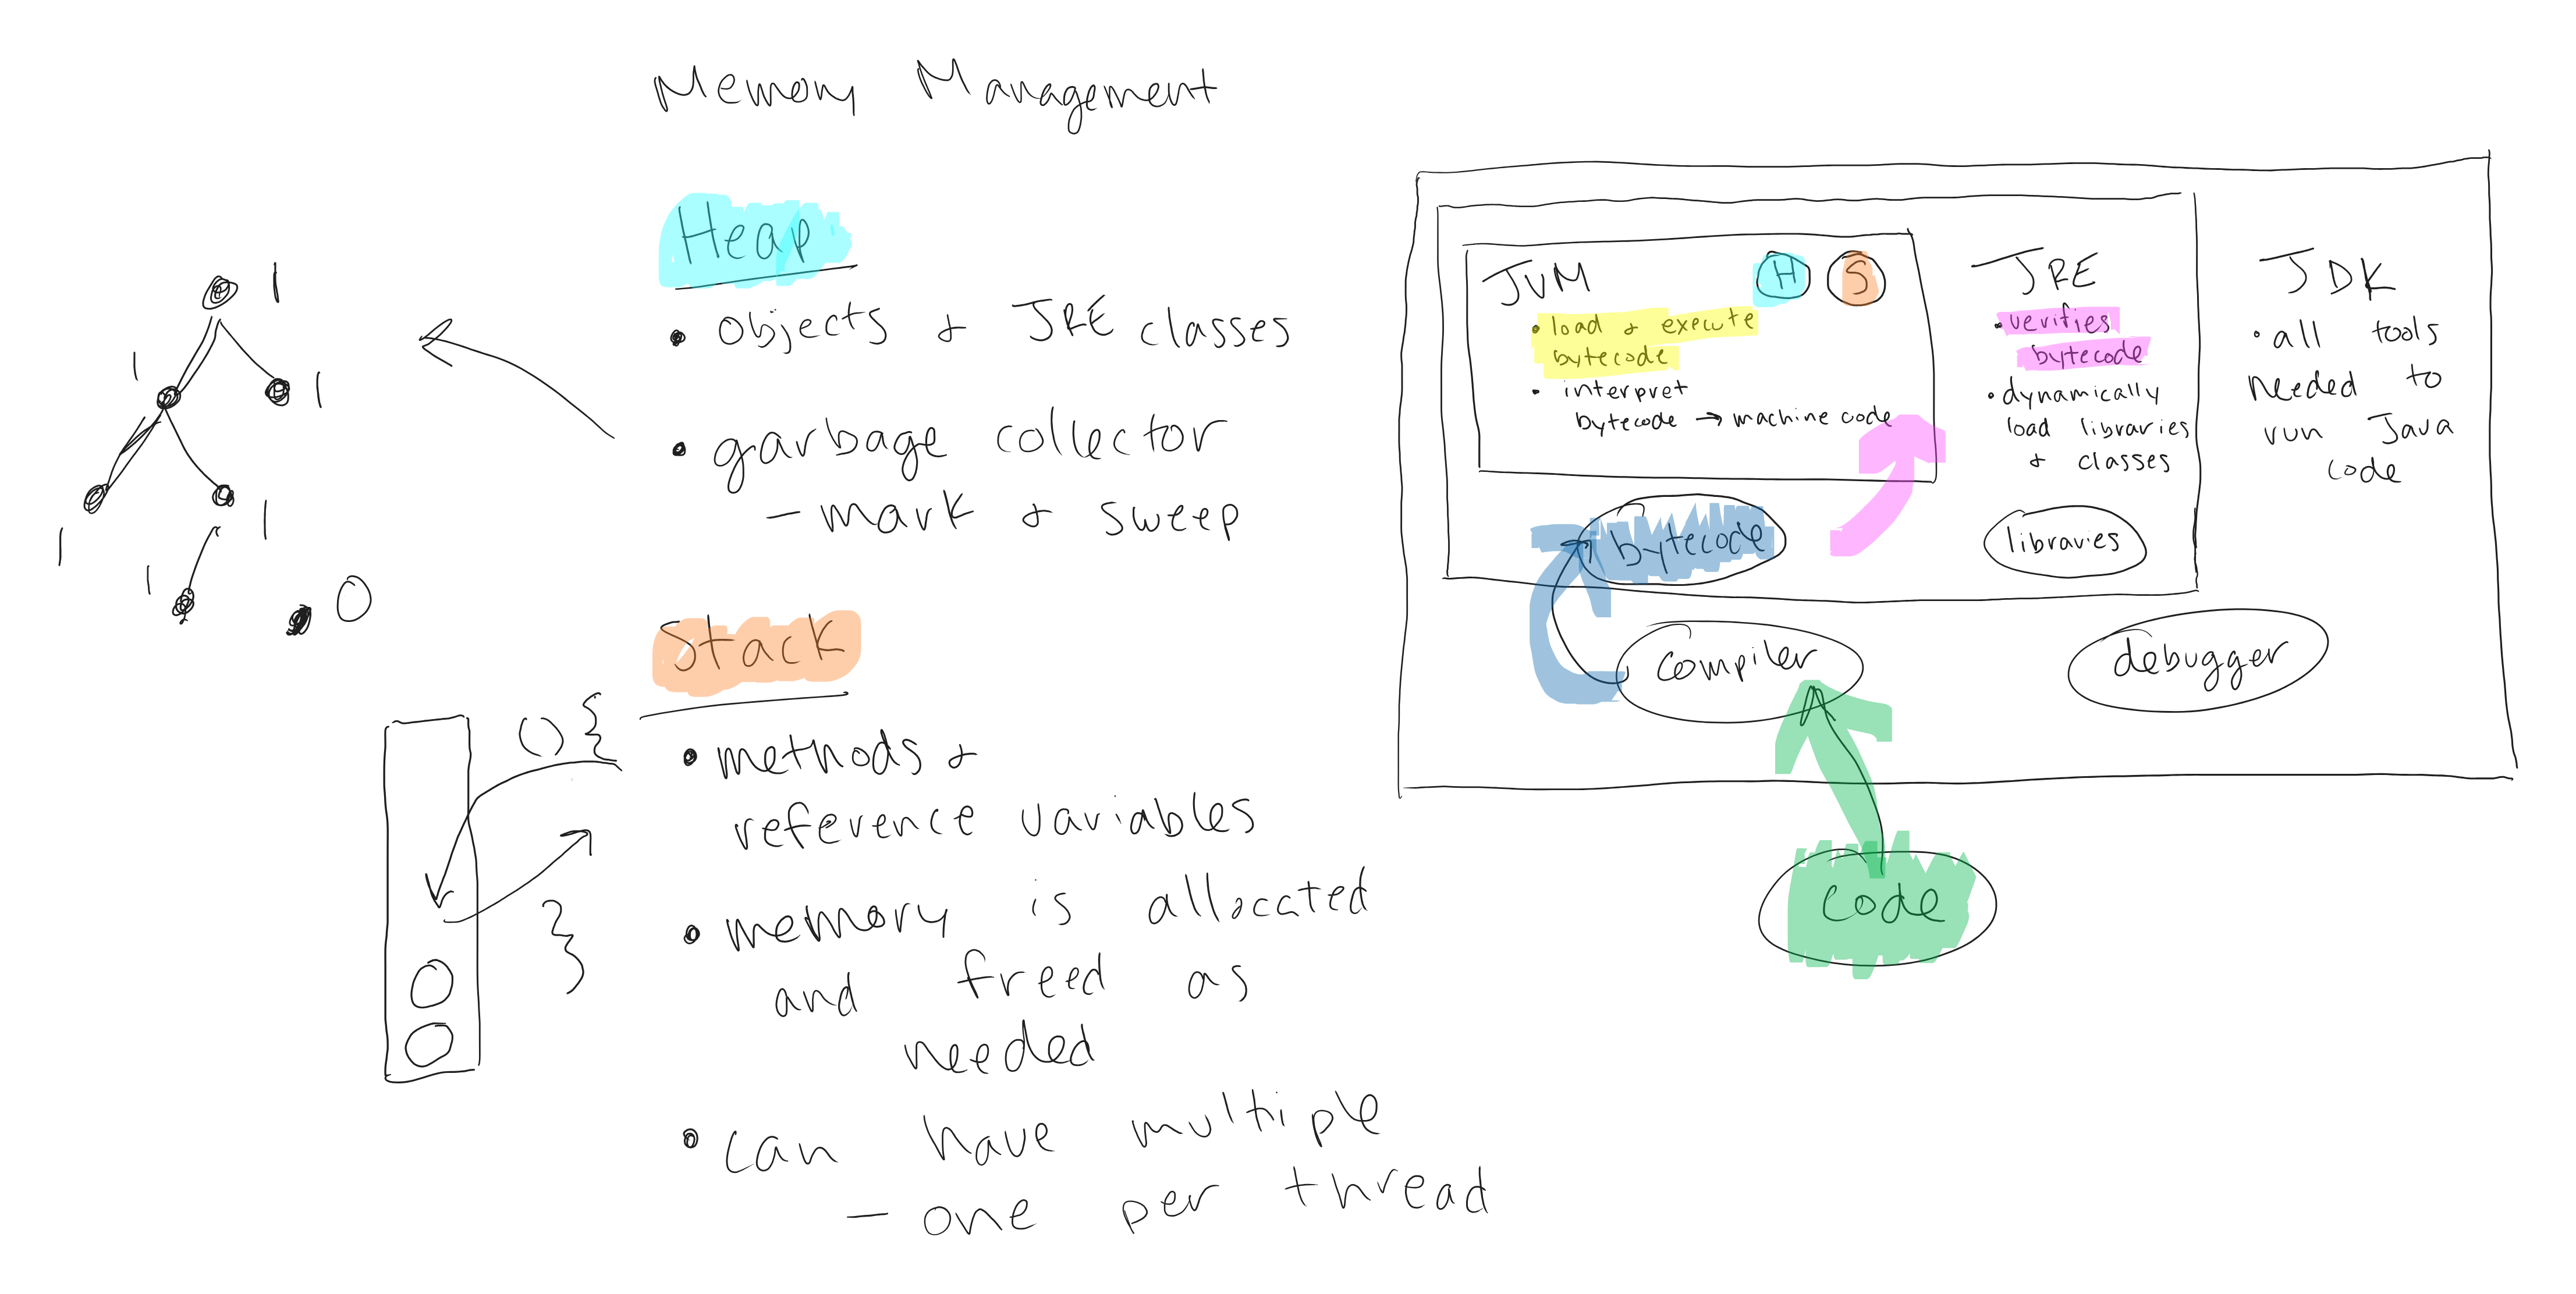 Memory Management
Heap
• objects & JRE classes
• garbage collector
- mark & sweep
1
1
1
1
1
1
0
Stack
() {
}
• methods &
reference variables
• memory is allocated
and freed as
needed
• can have multiple
- one per thread
JVM
H
S
• load & execute
bytecode
• interpret
bytecode → machine code
JRE
• verifies
bytecode
• dynamically
load libraries
& classes
JDK
• all tools
needed to
run Java
code
bytecode
libraries
compiler
debugger
code